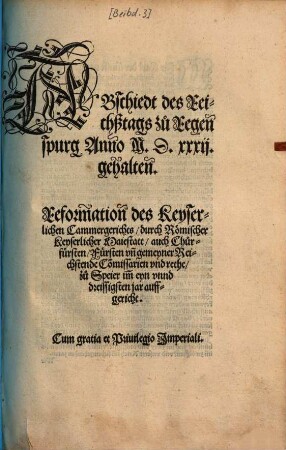 [Beibd. 3]
ABschiedt des Rei-
chßtags zů Regen
spurg Anno M. D. xxxij.
gehaltenn.
Reformation des Keyser-
lichen Cammergerichts / durch Römischer
Keyserlicher Maiestatt / auch Chür-
fürsten / Fürsten vñ gemeyner Rei-
chstende Cõmissarien vnd rethe /
zů Speier im eyn vnnd
dreissigsten jar auff-
gericht.
Cum gratia et Priuilegio Imperiali.